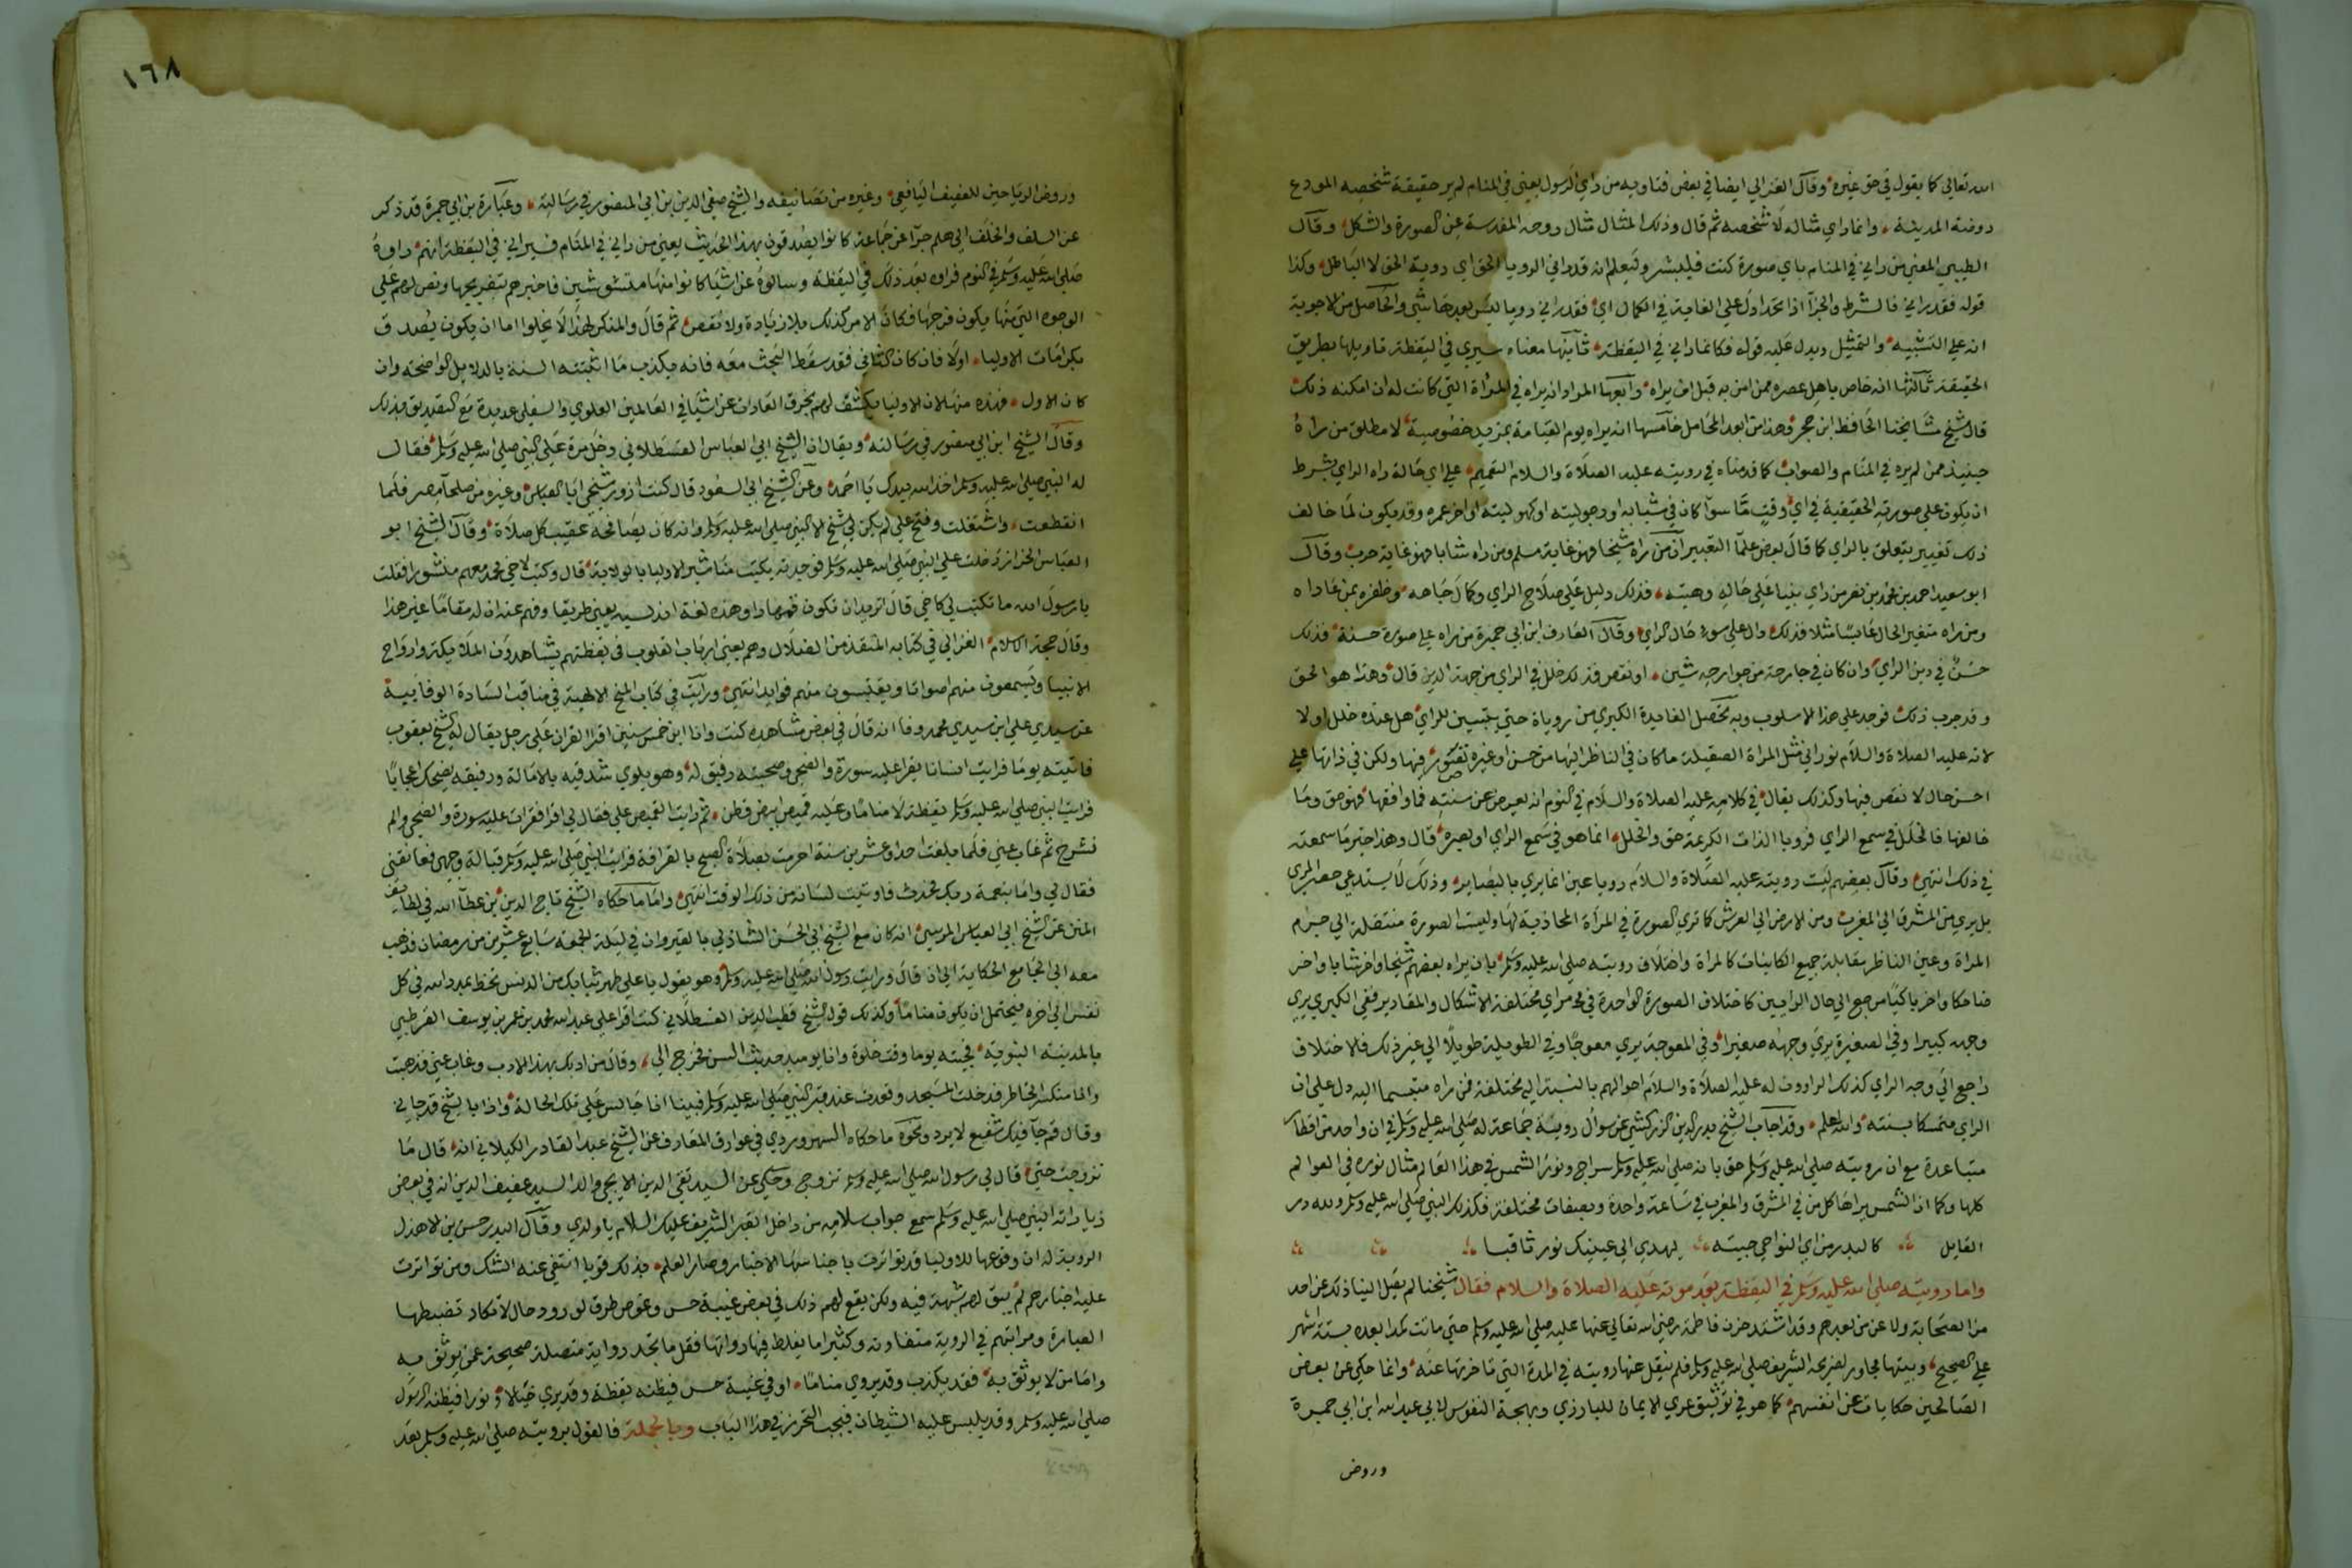 الله تعالى كما يقول في حق غيره وقال الغزالي ايضا في بعض فتاويه من راي الرسول يعني في المنام لم ير حقيقة شخصه المودع
روضة المدينة وانما راي مثاله لا شخصه ثم قال وذلك المثال مثال روحه المقدسة عن الصورة والشكل وقال
الطيبي المعني من راني في المنام باي صورة كنت فليبشر وليعلم انه قد راني الرويا الحق اي روية الحق لا الباطل وكذا
قوله فقد راني فالشرط والجزآ اذا اتحدا دل علي الغاية في الكمال اي فقد راني رويا ليس بعدها شي والحاصل من الاجوبة
انه علي التشبيه والتمثيل ويدل عليه قوله فكانما راني في اليقظة ثانيها معناه سيري في اليقظة تاويلها بطريق
الحقيقة ثالثها انه خاص باهل عصره ممن امن به قبل ان يراه رابعها المراد انه يراه في المرآة التي كانت له ان امكنه ذلك
قال شيخ مشايخنا الحافظ ابن حجر وهذا من ابعد المحامل خامسها انه يراه يوم القيامة بمزيد خصوصية لا مطلق من يراه
حينيذ ممن لم يره في المنام والصواب كما قدمناه في رويته عليه الصلاة والسلام التعميم علي اي حالة راه الراي بشرط
ان يكون علي صورته الحقيقية في اي وقت ما سوآ كان في شبابه او رجوليته او كهوليته او اخر عمره وقد يكون لما خالف
ذلك تعبير يتعلق بالراي كما قال بعض علمآ التعبير ان من راه شيخا فهو غاية سلم ومن راه شابا فهو غاية حرب وقال
ابو سعيد احمد بن محمد بن نصر من راي نبيا علي حاله وهيته فذلك دليل علي صلاح الراي وكمال جاهه وظفره بمن عاداه
ومن راه متغير الحال عابسا مثلا فذلك دال علي سوء حال الراي وقال العارف ابن ابي جمرة من راه علي صورة حسنة فذلك
حسن في دين الراي وان كان في جارحة من جوارحه شين او نقص فذلك خلل في الراي من جهة الدين قال وهذا هو الحق
وقد جرب ذلك فوجد علي هذا الاسلوب وبه تحصل الفايدة الكبري من روياه حتي يتبين للراي هل عنده خلل اولا
لانه عليه الصلاة والسلام نوراني مثل المرآة الصقيلة ما كان في الناظر اليها من حسن او غيره تصور فيها ولكن في ذاتها علي
احسن حال لا نقص فيها وكذلك يقال في كلامه عليه الصلاة والسلام في النوم انه يعرض عن سنته فما وافقها فهو حق وما
خالفها فالخلل في سمع الراي فرويا الذات الكريمة حق والخلل انما هو في سمع الراي او بصره قال وهذا خير ما سمعته
في ذلك انتهي وقال بعضهم ليست رويته عليه الصلاة والسلام رويا عين انما يري بالبصاير وذلك لا يستدعي حصر المري
بل يري من المشرق الي المغرب ومن الارض الي العرش كما تري الصورة في المرآة المحاذية لها وليست الصورة منتقلة الي جرم
المرآة وعين الناظر مقابلة جميع الكاينات كالمرآة واختلاف رويته صلي الله عليه وسلم بان يراه بعضهم شيخا واخر شابا واخر
ضاحكا واخر باكيا يرجع الي حال الرايين كاختلاف الصورة الواحدة في مراي مختلفة الاشكال والمقادير ففي الكبري يري
وجهه كبيرا وفي الصغيرة يري وجهه صغيرا وفي المعوجة يري معوجا وفي الطويلة طويلا الي غير ذلك فالاختلاف
راجع الي وجه الراي كذلك الراوون له عليه الصلاة والسلام احوالهم بالنسبة اليه مختلفة فمن راه متبسما اليه دل علي ان
الراي متمسكا بسنته والله اعلم وقد اجاب الشيخ بدر الدين الزركشي عن سوال روية جماعة له صلي الله عليه وسلم في ان واحد من اقطار
متباعدة مع ان رويته صلي الله عليه وسلم حق بانه صلي الله عليه وسلم سراج ونور الشمس في هذا العالم مثال نوره في العوالم
كلها وكما ان الشمس يراها كل من في المشرق والمغرب في ساعة واحدة وبصفات مختلفة فكذلك النبي صلي الله عليه وسلم ولله در
القايل كالبدر من اي النواحي جيته يهدي الي عينيك نورا ثاقبا
واما رويته صلي الله عليه وسلم في اليقظة بعد موته عليه الصلاة والسلام فقال شيخنا لم يصل الينا ذلك عن احد
من الصحابة ولا عن من بعدهم وقد اشتد حزن فاطمة رضي الله تعالي عنها عليه صلي الله عليه وسلم حتي ماتت كمدا بعده بستة اشهر
علي الصحيح وبيتها مجاور لضريحه الشريف صلي الله عليه وسلم فلم ينقل عنها رويته في المدة التي تاخرتها عنه وانما حكي عن بعض
الصالحين حكايات عن انفسهم كما هو في توثيق عري الايمان للبارزي وبهجة النفوس لابي عبد الله ابن ابي جمرة
وروض
١٦٨
وروض الرياحين للعفيف اليافعي وغيره من تصانيفه والشيخ صفي الدين بن ابي المنصور في رسالته وعبارة بن ابي جمرة قد ذكر
عن السلف والخلف الي هلم جرا عن جماعة كانوا يصدقون بهذا الحديث يعني من راني في المنام فسيراني في اليقظة انهم راوه
صلي الله عليه وسلم في النوم فراوه بعد ذلك في اليقظة وسالوه عن اشيا كانوا منها متشوشين فاخبرهم بتفريجها ونص لهم علي
الوجوه التي منها يكون فرجها فكان الامر كذلك بلا زيادة ولا نقص ثم قال والمنكر لهذا لا يخلوا اما ان يكون يصدق
بكرامات الاوليا اولا فان كان الثاني فقد سقط البحث معه فانه يكذب ما اثبتته السنة بالدلايل الواضحة وان
كان الاول فهذه منها لان الاوليا يكشف لهم بخرق العادات عن اشيا في العالمين العلوي والسفلي عديدة مع التصديق بذلك
وقال الشيخ ابن ابي منصور في رسالته ويقال ان الشيخ ابي العباس القسطلاني دخل مرة علي النبي صلي الله عليه وسلم فقال
له النبي صلي الله عليه وسلم اخذ الله بيدك يا احمد وعن الشيخ ابي السعود قال كنت ازور شيخي ابا العباس وغيره من صلحآ مصر فلما
انقطعت واشتغلت وفتح علي لم يكن لي شيخ الا النبي صلي الله عليه وسلم وانه كان يصافحه عقيب كل صلاة وقال الشيخ ابو
العباس الحرار دخلت علي النبي صلي الله عليه وسلم فوجدته يكتب مناشير الاوليا بالولاية قال وكتب لاخي محمد معهم منشورا فقلت
يا رسول الله ما تكتب لي كاخي قال اتريد ان تكون قمهادا وهذه لغة اندلسية يعني طريقا وفهم عنه ان له مقاما غير هذا
وقال حجة الاسلام الغزالي في كتابه المنقذ من الضلال وهم يعني ارباب القلوب في يقظتهم يشاهدون الملايكة وارواح
الانبيا ويسمعون منهم اصواتا ويقتبسون منهم فوايد انتهي ورايت في كتاب المنح الالهية في مناقب السادة الوفاييه
عن سيدي علي ابن سيدي محمد وفا انه قال في بعض مشاهده كنت وانا ابن خمس سنين اقرا القران علي رجل يقال له الشيخ يعقوب
فاتيته يوما فرايت انسانا يقرا عليه سورة والضحي وصحبته رفيق له وهو يلوي شدقيه بالامالة ورفيقه يضحك اعجابا
فرايت النبي صلي الله عليه وسلم يقظة لا مناما وعليه قميص ابيض قطن ثم رايت القميص علي فقال لي اقرا فقرات عليه سورة والضحي والم
نشرح ثم غاب عني فلما بلغت احدا وعشرين سنة احرمت بصلاة الصبح بالقرافة فرايت النبي صلي الله عليه وسلم قبالة وجهي فعانقني
فقال لي واما بنعمة ربك فحدث فاوتيت لسانه من ذلك الوقت انتهي واما ما حكاه الشيخ تاج الدين بن عطآ الله في لطايف
المنن عن الشيخ ابي العباس المرسي انه كان مع الشيخ ابي الحسن الشاذلي بالقيروان في ليلة الجمعة سابع عشرين من رمضان فذهب
معه الي الجامع الحكاية الي ان قال ورايت رسول الله صلي الله عليه وسلم وهو يقول يا علي طهر ثيابك من الدنس تحظ بمدد الله في كل
نفس الي اخره فيحتمل ان يكون مناما وكذلك قول الشيخ قطب الدين القسطلاني كنت اقرا علي عبد الله محمد بن عمر بن يوسف القرطبي
بالمدينة النبوية فجيته يوما وقت خلوة وانا يوميذ حديث السن فخرج الي وقال من ادبك بهذا الادب وعاب عني فذهبت
وانا منكسر الخاطر فدخلت المسجد وقعدت عند قبر النبي صلي الله عليه وسلم فبينا انا جالس علي تلك الحالة واذا بالشيخ قد جاني
وقال قم جآ فيك شفيع لا يرد ونحوه ما حكاه السهروردي في عوارف المعارف عن الشيخ عبد القادر الكيلاني انه قال ما
تزوجت حتي قال لي رسول الله صلي الله عليه وسلم تزوج وحكي عن السيد تقي الدين الايجي والد السيد عفيف الدين انه في بعض
زياراته النبي صلي الله عليه وسلم سمع جواب سلامه من داخل القبر الشريف عليك السلام يا ولدي وقال البدر حسن بن الاهدل
الروية له ان وقوعها للاوليا قد تواترت باجناسها الاخبار وصار العلم بذلك قويا انتفي عنه الشك ومن تواترت
عليه اخبارهم لم يبق لهم شبهة فيه ولكن يقع لهم ذلك في بعض غيبة حس وغموض طرف لورود حال لا تكاد تضبطها
العبارة ومراتبهم في الروية متفاوتة وكثيرا ما يغلط فيها رواتها فقل ما تجد رواية متصلة صحيحة عمن يوثق به
واما من لا يوثق به فقد يكذب وقد يروي مناما او في غيبة حس فيظنه يقظة وقد يري خيالا ونورا فيظنه الرسول
صلي الله عليه وسلم وقد يلبس عليه الشيطان فيجب التحرز في هذا الباب وبالجملة فالقول برويته صلي الله عليه وسلم بعد